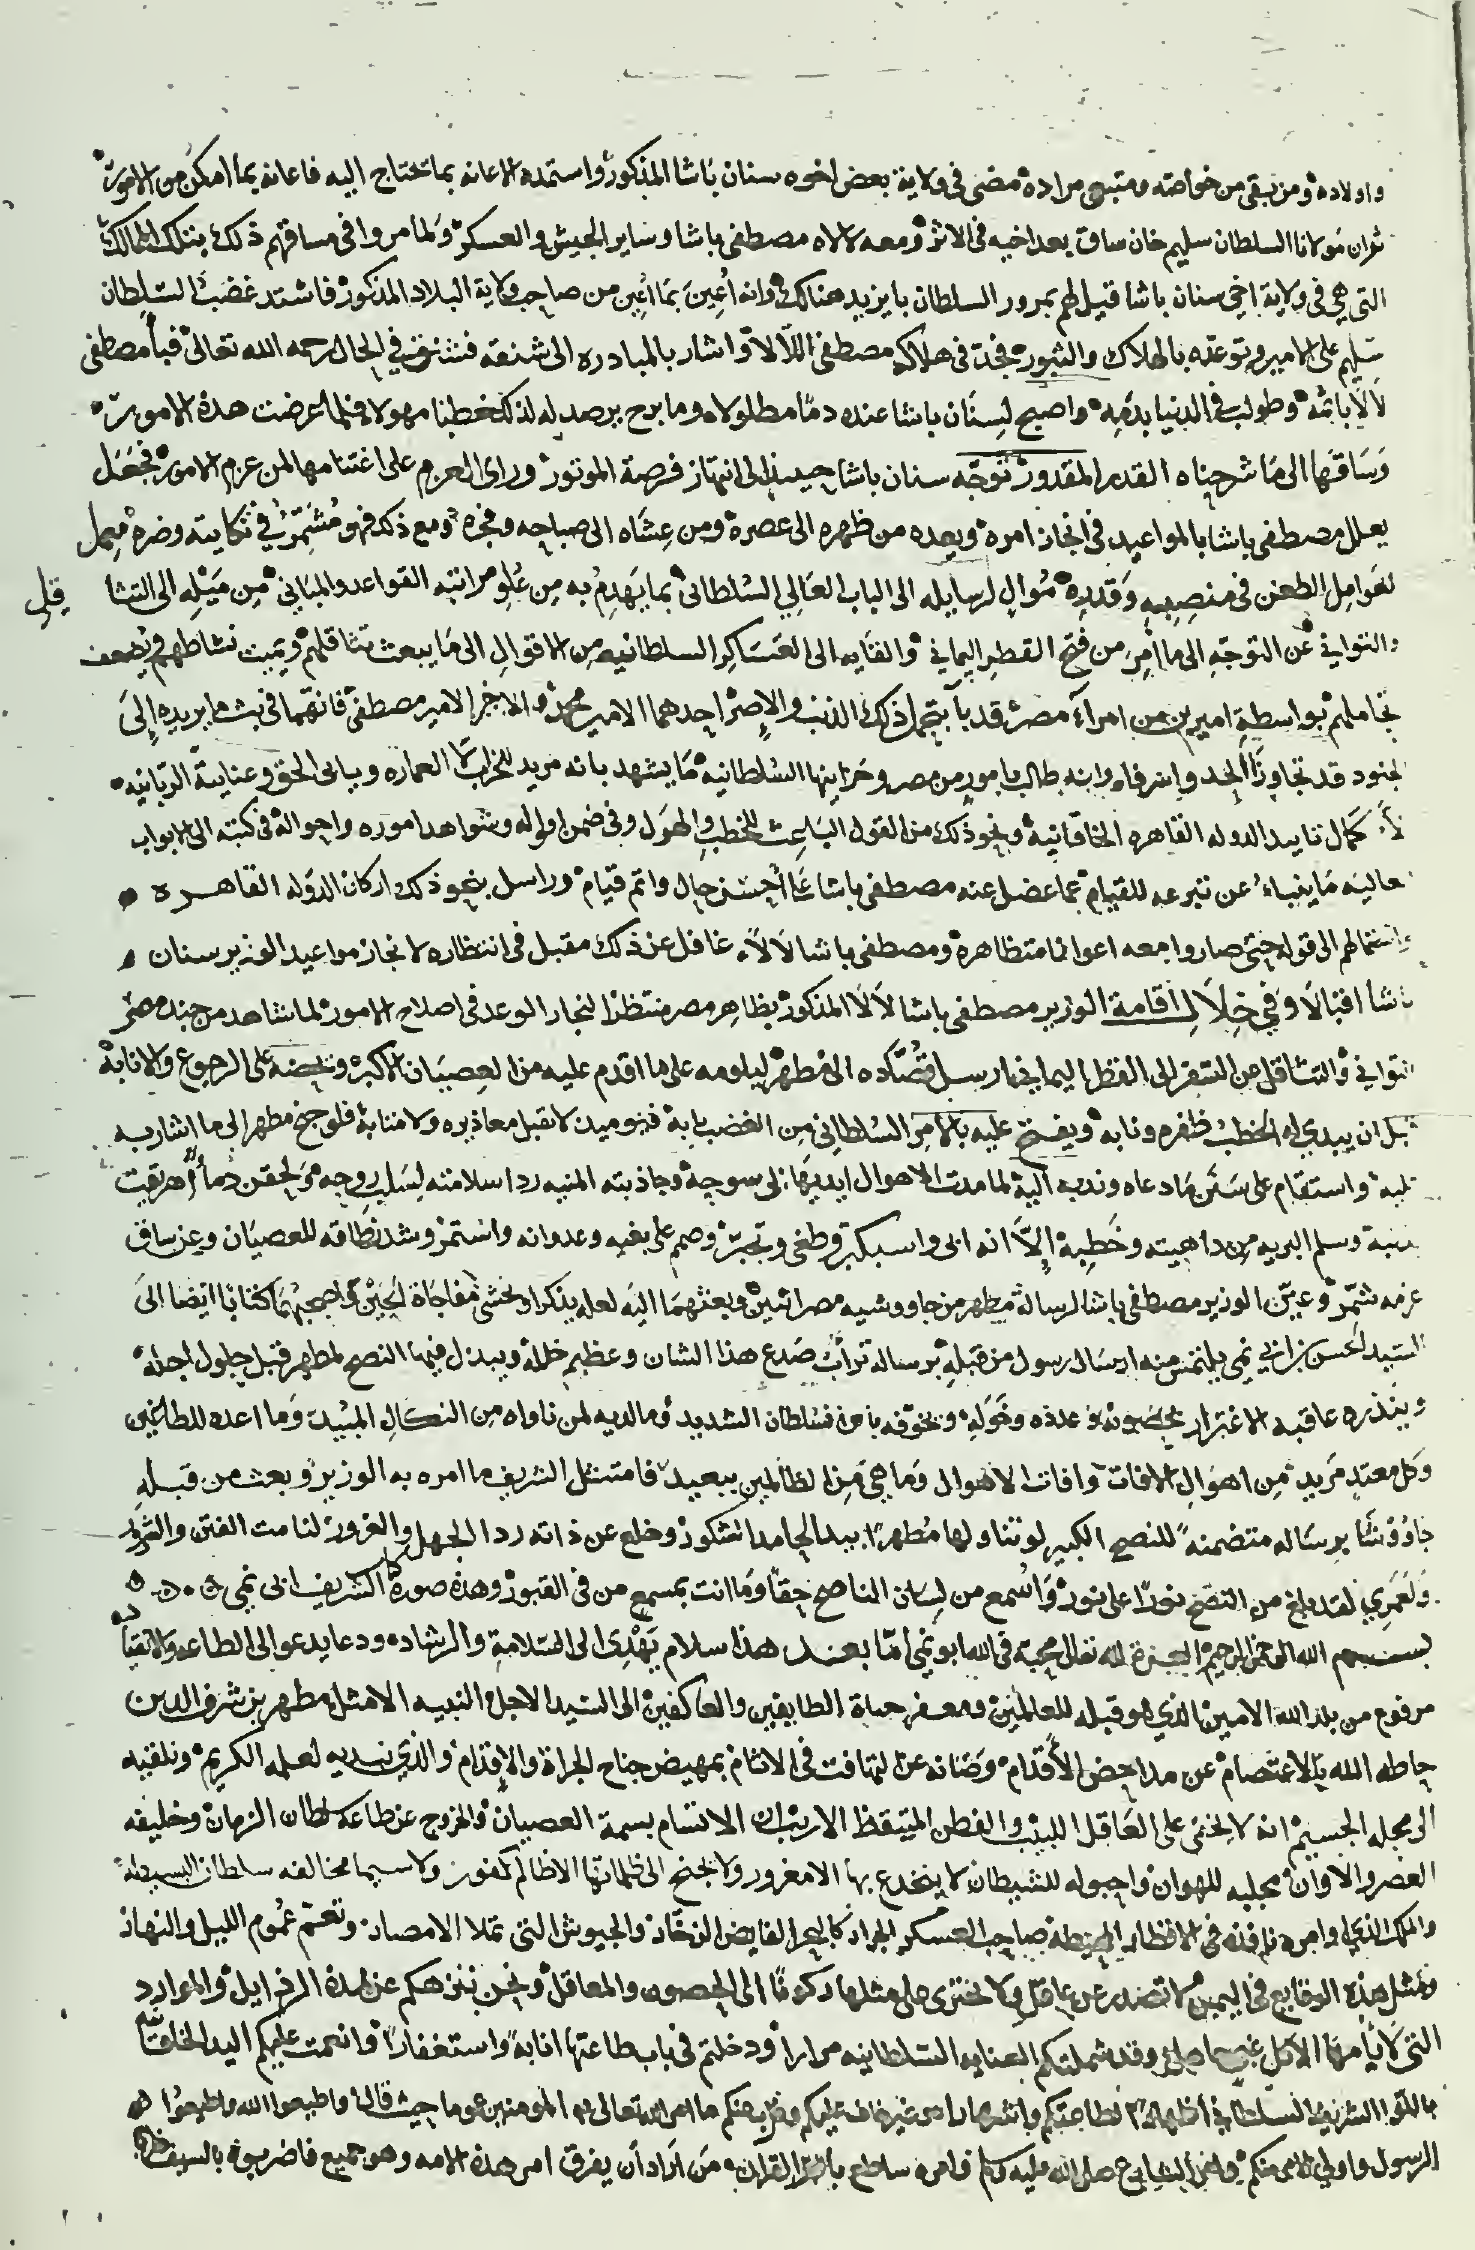 واولاده ومن بقى من خواصه ومتبعي مراده مضى فى ولاية بعض اخوه سنان باشا المذكور واستمده الاعانه بما تحتاج اليه فاعانه بما امكن من الامور
ثم ان مولانا السلطان سليم خان ساق بعد اخيه فى الاثر ومعه لالاه مصطفى باشا وساير الجيش والعسكر ولما مروا فى مساقهم ذلك بتلك الممالك
التى هي فى ولاية اخي سنان باشا قيل لهم بمرور السلطان بايزيد هنالك وانه اعين بما اعين من صاحب ولاية البلاد المذكور فاشتد غضب السلطان
سليم على الامير وتوعده بالهلاك والثبور فجد فى هلاكه مصطفى اللالا واشار بالمبادره الى شنقه فشنق في الحال رحمه الله تعالى فباء مصطفى
لالا باثمه وطولب فى الدنيا بدمه واصبح لسنان باشا عنده دما مطلولا وما برح يرصد له لذلك خطبا مهولا فلما عرضت هذه الامور
وساقها الى ما شرحناه القدر المقدور توجه سنان باشا حينئذ الى انتهاز فرصة الموتور وراى العزم على اغتنامها لمن عزم الامور فجعل
يعلل مصطفى باشا بالمواعيد فى انجاز امره ويعده من ظهره الى عصره ومن عشاه الى صباحه وفجره ومع ذلك فهو مشمر في نكايته وضره معمل
لعوامل الطعن فى منصبه وقدره موال لرسايله الى الباب العالي السلطانى بما يهدم به من علو مراتبه القواعد والمبانى من ميله الى التثا
قل
والتواني عن التوجه الى ما امر من فتح القطر اليماني والقايه الى العساكر السلطانيه من الاقوال الى ما يبعث تثاقلهم ويميت نشاطهم ويضعف
تحاملهم بواسطة اميرين من امراء مصر قد باء بتحمل ذلك الذنب والإصر احدهما الامير محمد والاخر الامير مصطفى فانهما فى بث ما يريده إلى
الجنود قد تجاوزا الحد واسرفا وانه طالب بامور من مصر وخزاينها السلطانيه ما يشهد بانه مريد للخراب لا العماره ويابى الحق وعناية الربانيه
لا كمال تاييد الدوله القاهره الخاقانية ونحو ذلك من القول الباعث للخطب والهول وفى ضمن اقواله وشواهد اموره واحواله فى كتبه الى الابواب
العاليه ما ينباء عن تبرعه للقيام بما عضل عنه مصطفى باشا على احسن حال واتم قيام وراسل بنحو ذلك اركان الدوله القاهره
واستمالهم الى قوله حتى صاروا معه اعوانا متظاهره ومصطفى باشا لالا غافل عن ذلك مقبل فى انتظاره لانجاز مواعيد الوزير سنان
باشا اقبالا وفي خلال اقامة الوزير مصطفى باشا لالا المذكور بظاهر مصر منتظرا لنجاز الوعد فى اصلاح الامور لما شاهد من جند مصر
التواني والتثاقل عن السفر الى القطر اليماني ارسل قصاده الى مطهر ليلومه على ما اقدم عليه من العصيان الاكبر ويحضه على الرجوع والانابة
قبل ان يبدي له الخطب ظفره ونابه ويفتح عليه بالامر السلطاني من الغضب بابه فيوميذ لا تقبل معاذيره ولا متابه فلو جنح مطهر الى ما اشار به
عليه واستقام على سنن ما دعاه وندبه اليه لما مدت الاهوال ايديها الى سوحه وجاذبته المنيه ردا سلامته لسلب روحه ولحقن دماء اهريقت
بسببه وسلم البريه من داهيته وخطبه إلا انه ابى واستكبر وطغى وتجبر وصمم على بغيه وعدوانه واستمر وشد نطاقه للعصيان وعن ساق
عزمه شمر وعين الوزير مصطفى باشا لرسالة مطهر من جاووشيه مصر اثنين وبعثهما اليه لعله يتذكر او يخشى مفاجاة الحين واصحبهما كتابا ايضا الى
السيد الحسن بن ابي نمي يلتمس منه ارسال رسول من قبله برساله ترأب صدع هذا الشان وعظيم خلله ويبذل فيها النصح لمطهر قبل حلول اجله
وينذره عاقبه الاغترار بحصونه وعدده وخوله ويخوفه باس السلطان الشديد وما لديه لمن ناواه من النكال المبيد وما اعده للطاغين
وكل معتد مريد من اهوال الافات وافات الاهوال وما هي من الظالمين ببعيد فامتثل الشريف ما امره به الوزير وبعث من قبله
جاووشا برساله متضمنه للنصح الكبير لو تناولها مطهر بيد الحامد الشكور وخلع عن ذاته ردا الجهل والغرور لنامت الفتن والشرور
ولعمري لقد بلغ من النصح نورا على نور وأسمع من لسان الناصح حقا وما انت بمسمع من فى القبور وهذه صورة كتاب الشريف ابى نمي
بسم الله الرحمن الرحيم العزة لله تعالى محبه فى الله ابو نمي أما بعد هذا سلام يهدى الى السلامة والرشاده ودعا يدعو الى الطاعه والانقياد
مرفوع من بلد الله الامين الذي هو قبله للعالمين ومعفر جباة الطايفين والعاكفين الى السيد الاجل النبيه الامثل مطهر بن شرف الدين
حاطه الله بالاعتصام عن مداحض الأقدام وصانه عن التهافت فى الاثام بمهيض جناح الجراة والإقدام والذي نبديه لعلمه الكريم ونلقيه
الى محله الجسيم انه لا يخفى على العاقل اللبيب والفطن المتيقظ الاريب ان الاتسام بسمة العصيان والخروج عن طاعة سلطان الزمان وخليفه
العصر والاوان مجلبه للهوان واحبوله للشيطان لا ينخدع بها الا مغرور ولا يجنح الى ظلماتها الا ظالم كفور ولا سيما مخالفه سلطان البسيطه
والملك الذي اوامره نافذه فى الاقطار المحيطه صاحب العسكر الجرار كالبحر الفايض الزخار والجيوش التى تملا الامصار وتعم عموم الليل والنهار
ومثل هذه الوقايع فى اليمن لا تصدر عن عاقل ولا يجترى على مثلها ركونا الى الحصون والمعاقل ونحن ننزهكم عن هذه الرذايل والموارد
التى لا يامها الا كل وقد شملتكم العنايه السلطانيه مرارا ودخلتم فى باب طاعتها انابه واستغفارا وانعمت عليكم اليد الخاقانيه
باللوا الشريف السلطاني وفرض عليكم ما امر الله تعالى به المومنين عموما حيث قال واطيعوا الله واطيعوا
الرسول واولي الامر منكم صلى الله عليه وسلم وامره ساطع من اراد أن يفرق امر هذه الامه وهو جميع فاضربوه بالسيف